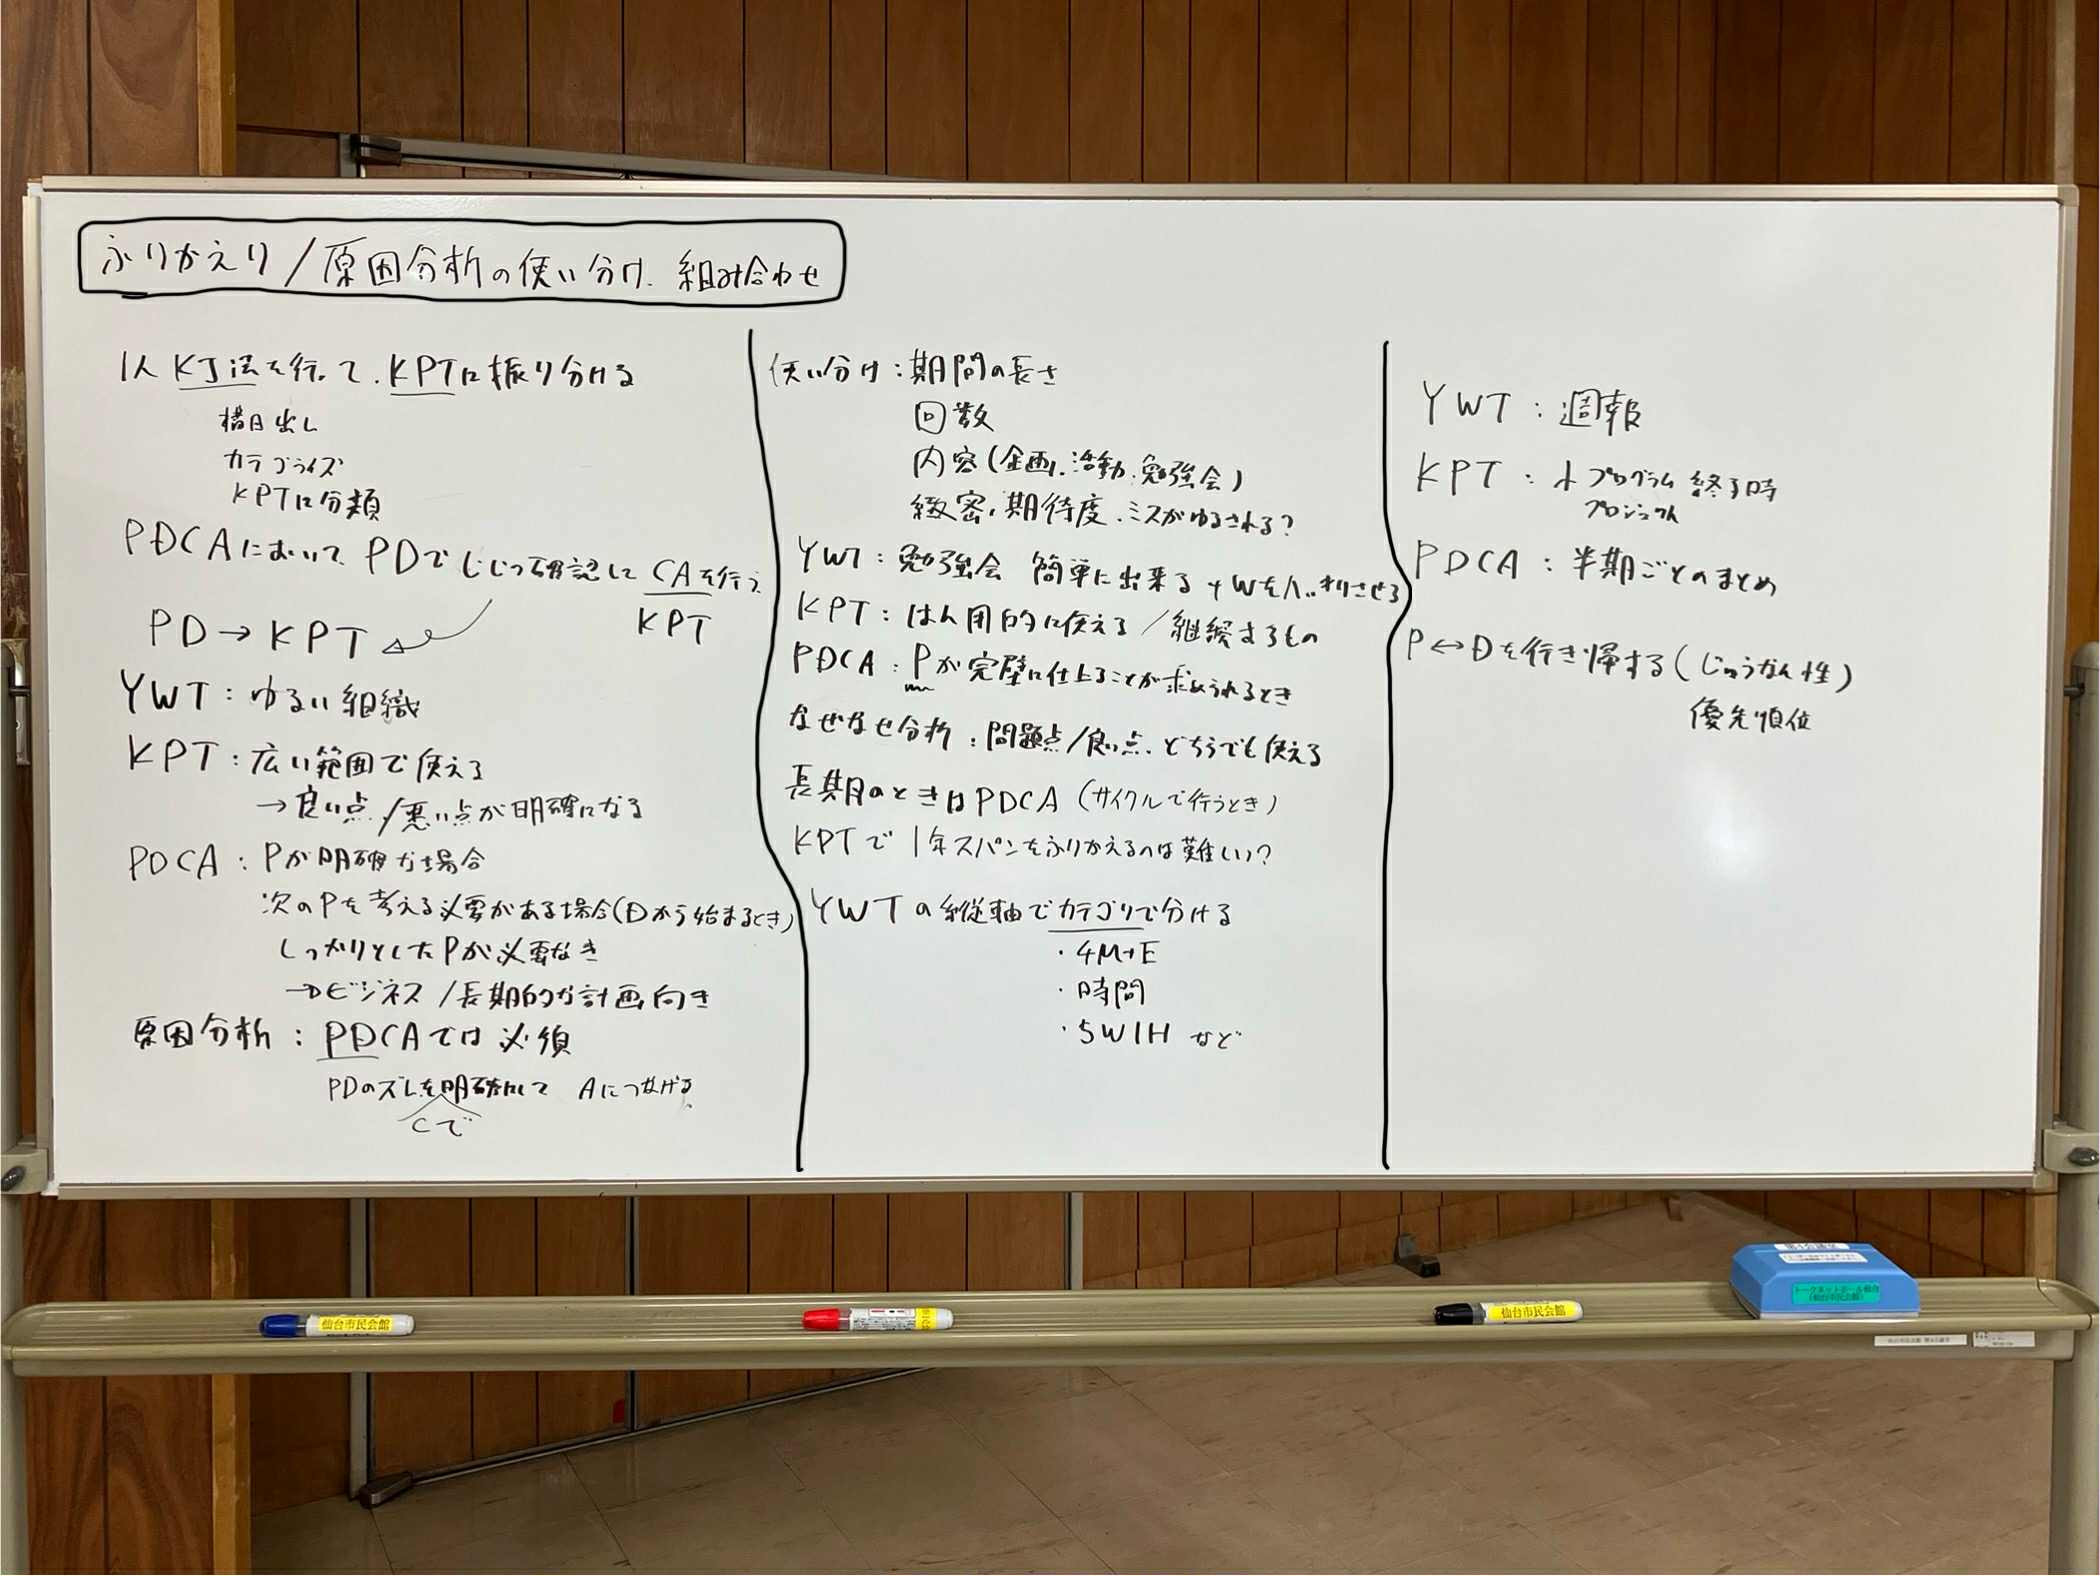 ふりかえり/原因分析の使い分け、組み合わせ
1人KJ法を行って、KPTに振り分ける
橫目出し
カテゴライズ
KPTに分類
PDCAにおいて、PDでじじつ確認してCAを行う
KPT
PD→KPT
YWT：ゆるい組織
KPT：広い範囲で使える
→良い点/悪い点が明確になる
PDCA：Pが明確な場合
次のPを考える必要がある場合(Dから始まるとき)
しっかりとしたPが必要なき
→ビジネス/長期的な計画向き
原因分析：PDCAでは必須
PDのズレを明確にして Aにつなげる
Cで
使い分け：期間の長さ
回数
内容(企画、活動、勉強会)
緻密、期待度、ミスがゆるされる?
YWT：勉強会 簡単に出来る YWをハッキリさせる
KPT：はん用的に使える/継続するもの
PDCA：Pが完璧に仕上ることが求められるとき
なぜなぜ分析：問題点/良い点、どちらでも使える
長期のときはPDCA(サイクルで行うとき)
KPTで1年スパンをふりかえるのは難しい?
YWTの縦軸でカテゴリで分ける
・4M+E
・時間
・5W1H など
YWT：週報
KPT：小プログラム 終了時
プロジェクト
PDCA：半期ごとのまとめ
P↔Dを行き帰する(じゅうなん性)
優先順位
仙台市民会館
仙台市民会館
トークネットホール仙台
(仙台市民会館)